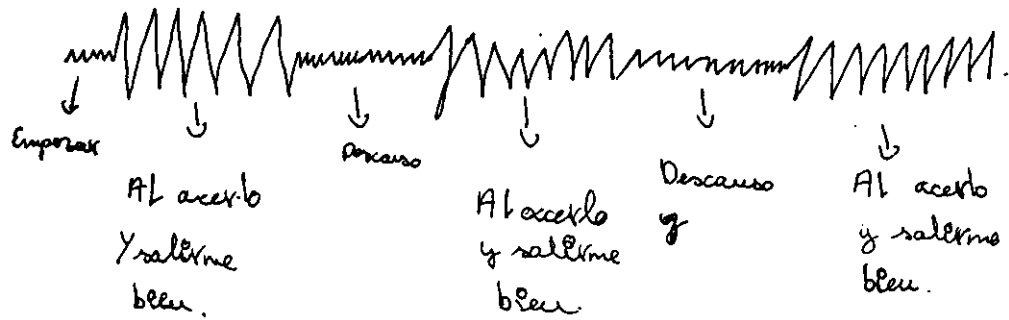 Empezar
Al acerlo
Y salirme
bien.
Descanso
Al accerlo
y salirme
bien.
Descanso
y
Al acerlo
y salirme
bien.